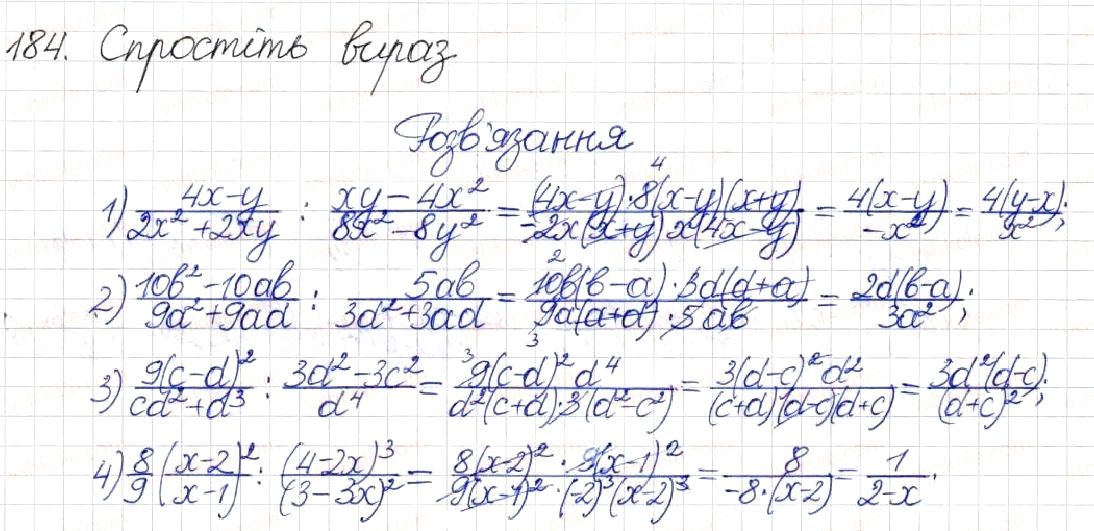 184. Спростіть вираз
Розв'язання
1) (4x-y)/(2x²+2xy) : (xy-4x²)/(8x²-8y²) = ((4x-y)·8(x-y)(x+y))/(-2x(x+y)x(4x-y)) = 4(x-y)/(-x²) = 4(y-x)/x²;
2) (10b²-10ab)/(9a²+9ad) : 5ab/(3d²+3ad) = (10b(b-a)·3d(d+a))/(9a(a+d)·5ab) = 2d(b-a)/3a²;
3) 9(c-d)²/(cd²+d³) : (3d²-3c²)/d⁴ = 9(c-d)²d⁴/(d²(c+d)·3(d²-c²)) = 3(d-c)²d²/((c+d)(d-c)(d+c)) = 3d²(d-c)/(d+c)²;
4) 8/9 ((x-2)/(x-1))² : (4-2x)³/(3-3x)² = (8(x-2)²·9(x-1)²)/(9(x-1)²·(-2)³(x-2)³) = 8/(-8·(x-2)) = 1/(2-x).